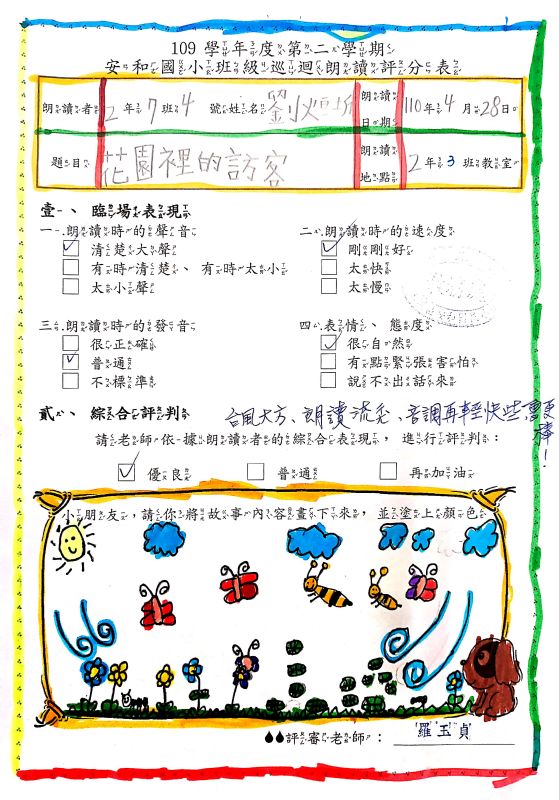 109 學年度第二學期
安和國小班級巡迴朗讀評分表
朗讀者 2年7班4號姓名 劉 朗讀日期 110年4月28日
題目 花園裡的訪客 朗讀地點 2年3班教室
壹、臨場表現
一.朗讀時的聲音 二.朗讀時的速度
清楚大聲 剛剛好
有時清楚、有時太小 太快
太小聲 太慢
三.朗讀時的發音 四.表情、態度
很正確 很自然
普通 有點緊張害怕
不標準 說不出話來
貳、綜合評判 台風大方、朗讀流利、音調再輕快些會更棒！
請老師依據朗讀者的綜合表現，進行評判：
優良 普通 再加油
小朋友，請你將故事內容畫下來，並塗上顏色
評審老師：羅玉貞